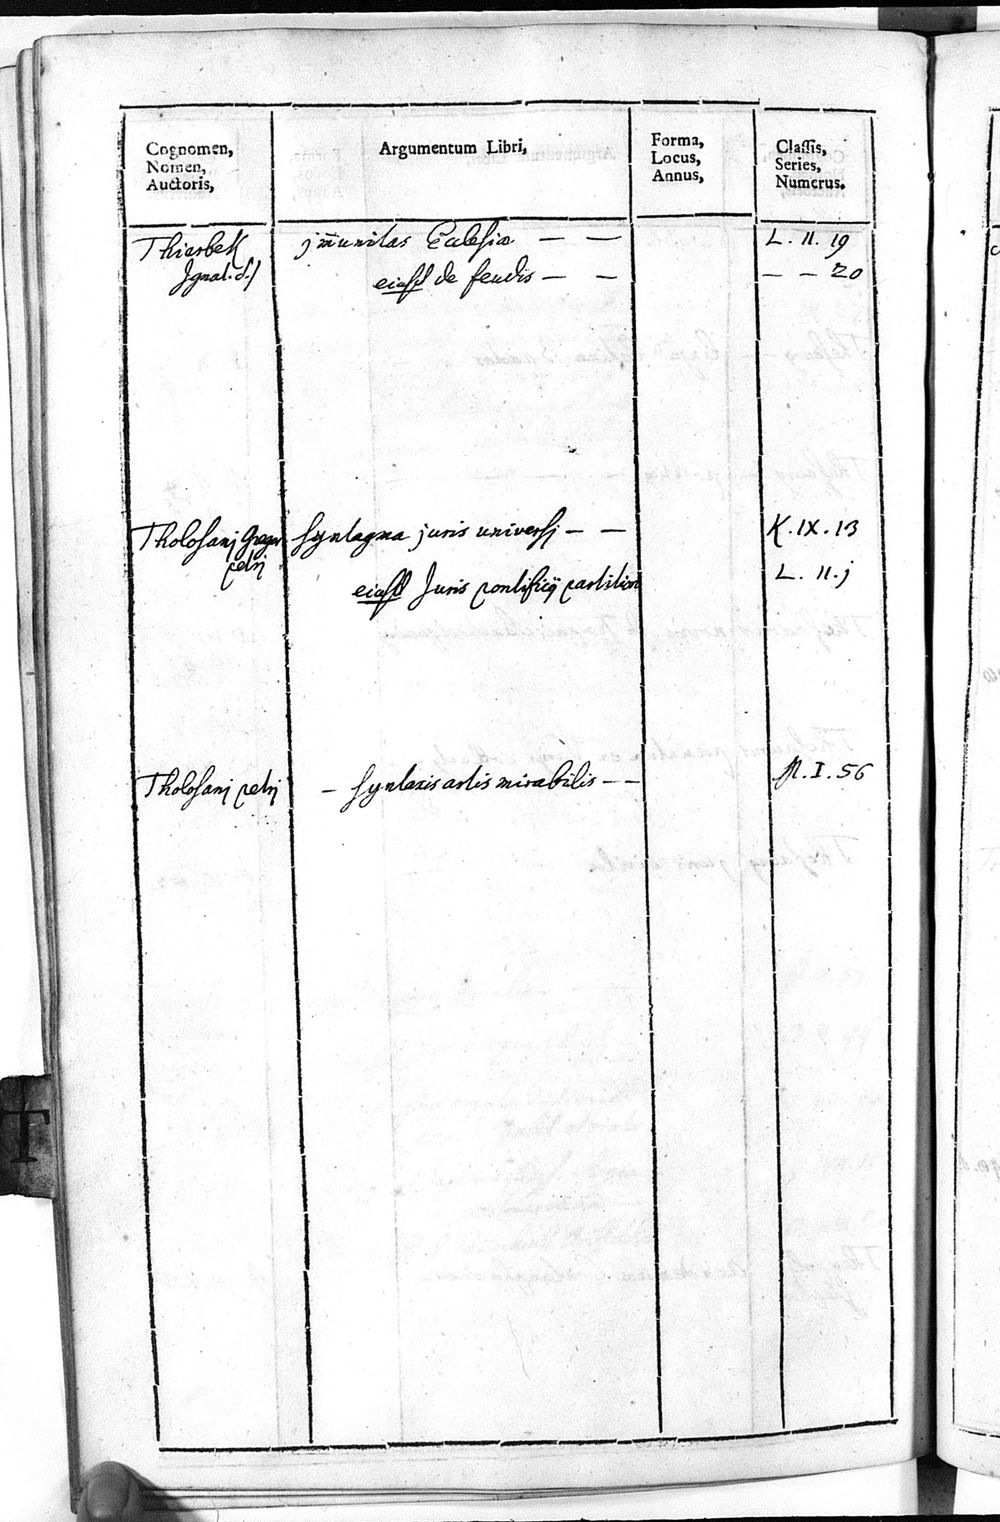 Cognomen,
Nomen,
Auctoris,
Argumentum Libri,
Forma,
Locus,
Annus,
Classis,
Series,
Numerus.
Thiesbek im̃unitas Ecclesiæ — — L. II. 19
Ignat. S.J eiusd de feudis — — — — 20
Tholosanj Gregor Syntagma juris universj — — K. IX. 13
petrj
eiusd Juris pontificij partition L. II. j
Tholosanj petrj — Syntaxis artis mirabilis — — M. I. 56
T